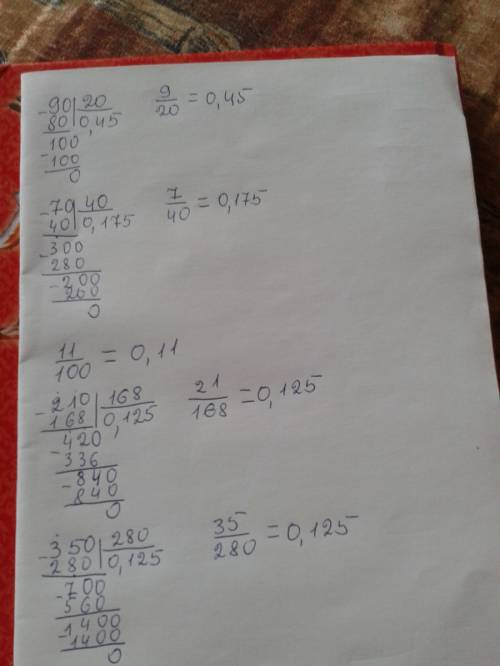 -90|20 9/20 = 0,45
80|0,45
100
-100
0
-70|40 7/40 = 0,175
40|0,175
-300
280
-200
200
0
11/100 = 0,11
-210|168 21/168 = 0,125
168|0,125
-420
336
-840
840
0
-350|280 35/280 = 0,125
280|0,125
-700
560
-1400
1400
0